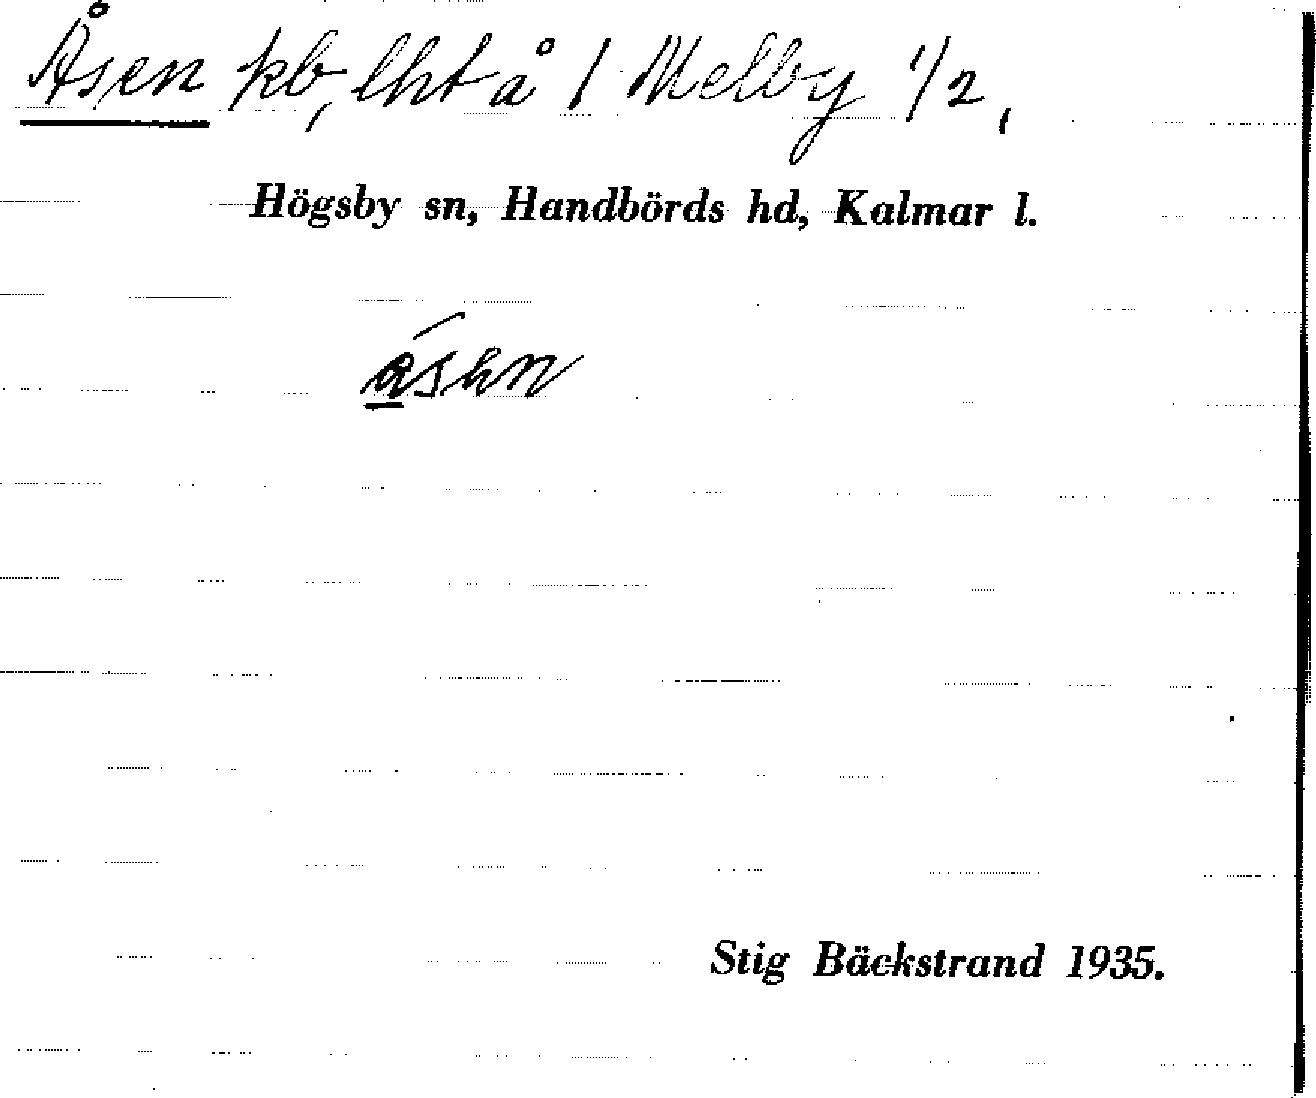 Åsen kb, lht å 1 Melby 1/2,
Högsby sn, Handbörds hd, Kalmar l.
Stig Bäckstrand 1935.